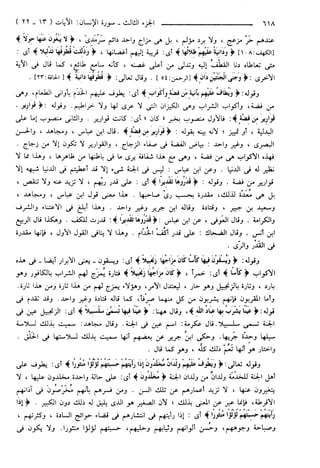 ٦١٨ الجزء الثالث - سورة الإنسان: الآيات (١٣ - ٢٢)
عندهم حَرّ مزعج، ولا برد مؤلم، بل هي مزاج واحد دائم سَرْمَدْيّ، ﴿لَا يَبْغُونَ عَنْهَا حِوَلًا﴾
[الكهف: ١٠٨] ﴿وَدَانِيَةً عَلَيْهِمْ ظِلَالُهَا﴾ أي: قريبة إليهم أغصانها، ﴿وَذُلِّلَتْ قُطُوفُهَا تَذْلِيلًا﴾ أي:
متى تعاطاه دنا القِطْفُ إليه وتدلى من أعلى غصنه، كأنه سامع طائع، كما قال في الآية
الأخرى: ﴿وَجَنَى الْجَنَّتَيْنِ دَانٍ﴾ [الرحمن: ٥٤]. وقال تعالى: ﴿قُطُوفُهَا دَانِيَةٌ﴾ [الحاقة: ٢٣].
وقوله: ﴿وَيُطَافُ عَلَيْهِمْ بِآنِيَةٍ مِنْ فِضَّةٍ وَأَكْوَابٍ﴾ أي: يطوف عليهم الخَدَم بأواني الطعام، وهي
من فضة، وأكواب الشراب وهي الكيزان التي لا عرى لها ولا خراطيم. وقوله: ﴿قَوَارِيرَ
قَوَارِيرَ مِنْ فِضَّةٍ﴾: فالأول منصوب بخبر «كان» أي: كانت قوارير. والثاني منصوب إما على
البدلية، أو تمييز؛ لأنه بينه بقوله: ﴿قَوَارِيرَ مِنْ فِضَّةٍ﴾. قال ابن عباس، ومجاهد، والحسن
البصري، وغير واحد: بياض الفضة في صفاء الزجاج، والقوارير لا تكون إلا من زجاج.
فهذه الأكواب هي من فضة، وهي مع هذا شفافة يرى ما في باطنها من ظاهرها، وهذا مما لا
نظير له في الدنيا. وعن ابن عباس: ليس في الجنة شيء إلا قد أعطيتم في الدنيا شبهه إلا
قوارير من فضة. وقوله: ﴿قَدَّرُوهَا تَقْدِيرًا﴾ أي: على قدر ريهم، لا تزيد عنه ولا تنقص،
بل هي مُعدَّة لذلك، مقدرة بحسب ريّ صاحبها. هذا معنى قول ابن عباس، ومجاهد،
وسعيد بن جبير، وقتادة وقاله ابن جرير وغير واحد. وهذا أبلغ في الاعتناء والشرف
والكرامة. وقال العَوفي، عن ابن عباس: ﴿قَدَّرُوهَا تَقْدِيرًا﴾: قدرت للكف. وهكذا قال الربيع
ابن أنس. وقال الضحاك: على قدر أكفّ الخُدّام. وهذا لا ينافي القول الأول، فإنها مقدرة
في القَدْر والرّي.
وقوله: ﴿وَيُسْقَوْنَ فِيهَا كَأْسًا كَانَ مِزَاجُهَا زَنْجَبِيلًا﴾ أي: ويسقون - يعني الأبرار أيضا - في هذه
الأكواب ﴿كَأْسًا﴾ أي: خمرا، ﴿كَانَ مِزَاجُهَا زَنْجَبِيلًا﴾ فتارة يُمزَج لهم الشراب بالكافور وهو
بارد، وتارة بالزنجبيل وهو حار، ليعتدل الأمر، وهؤلاء يمزج لهم من هذا تارة ومن هذا تارة.
وأما المقربون فإنهم يشربون من كل منهما صرفًا، كما قاله قتادة وغير واحد. وقد تقدم في
قوله: ﴿عَيْنًا يَشْرَبُ بِهَا عِبَادُ اللَّهِ﴾، وقال هاهنا: ﴿عَيْنًا فِيهَا تُسَمَّى سَلْسَبِيلًا﴾ أي: الزنجبيل عين في
الجنة تسمى سلسبيلا. قال عكرمة: اسم عين في الجنة. وقال مجاهد: سميت بذلك لسلاسة
سيلها وحِدّة جَريها. وحكى ابنُ جرير عن بعضهم أنها سميت بذلك لسلاستها في الحَلْق.
واختار هو أنها تَعُمّ ذلك كلَّه، وهو كما قال.
وقوله تعالى: ﴿وَيَطُوفُ عَلَيْهِمْ وِلْدَانٌ مُخَلَّدُونَ إِذَا رَأَيْتَهُمْ حَسِبْتَهُمْ لُؤْلُؤًا مَنْثُورًا﴾ أي: يطوف على
أهل الجنة للخدْمة ولدانٌ من ولدان الجنة ﴿مُخَلَّدُونَ﴾ أي: على حالة واحدة مخلدون عليها، لا
يتغيرون عنها، لا تزيد أعمارهم عن تلك السن. ومن فسرهم بأنهم مُخَرّصُونَ في آذانهم
الأقرطة، فإنما عبر عن المعنى بذلك؛ لأن الصغير هو الذي يليق له ذلك دون الكبير. ﴿إِذَا
رَأَيْتَهُمْ حَسِبْتَهُمْ لُؤْلُؤًا مَنْثُورًا﴾ أي: إذا رأيتهم في انتشارهم في قضاء حوائج السادة، وكثرتهم،
وصباحة وجوههم، وحسن ألوانهم وثيابهم وحليهم، حسبتهم لؤلؤا منثورا. ولا يكون في